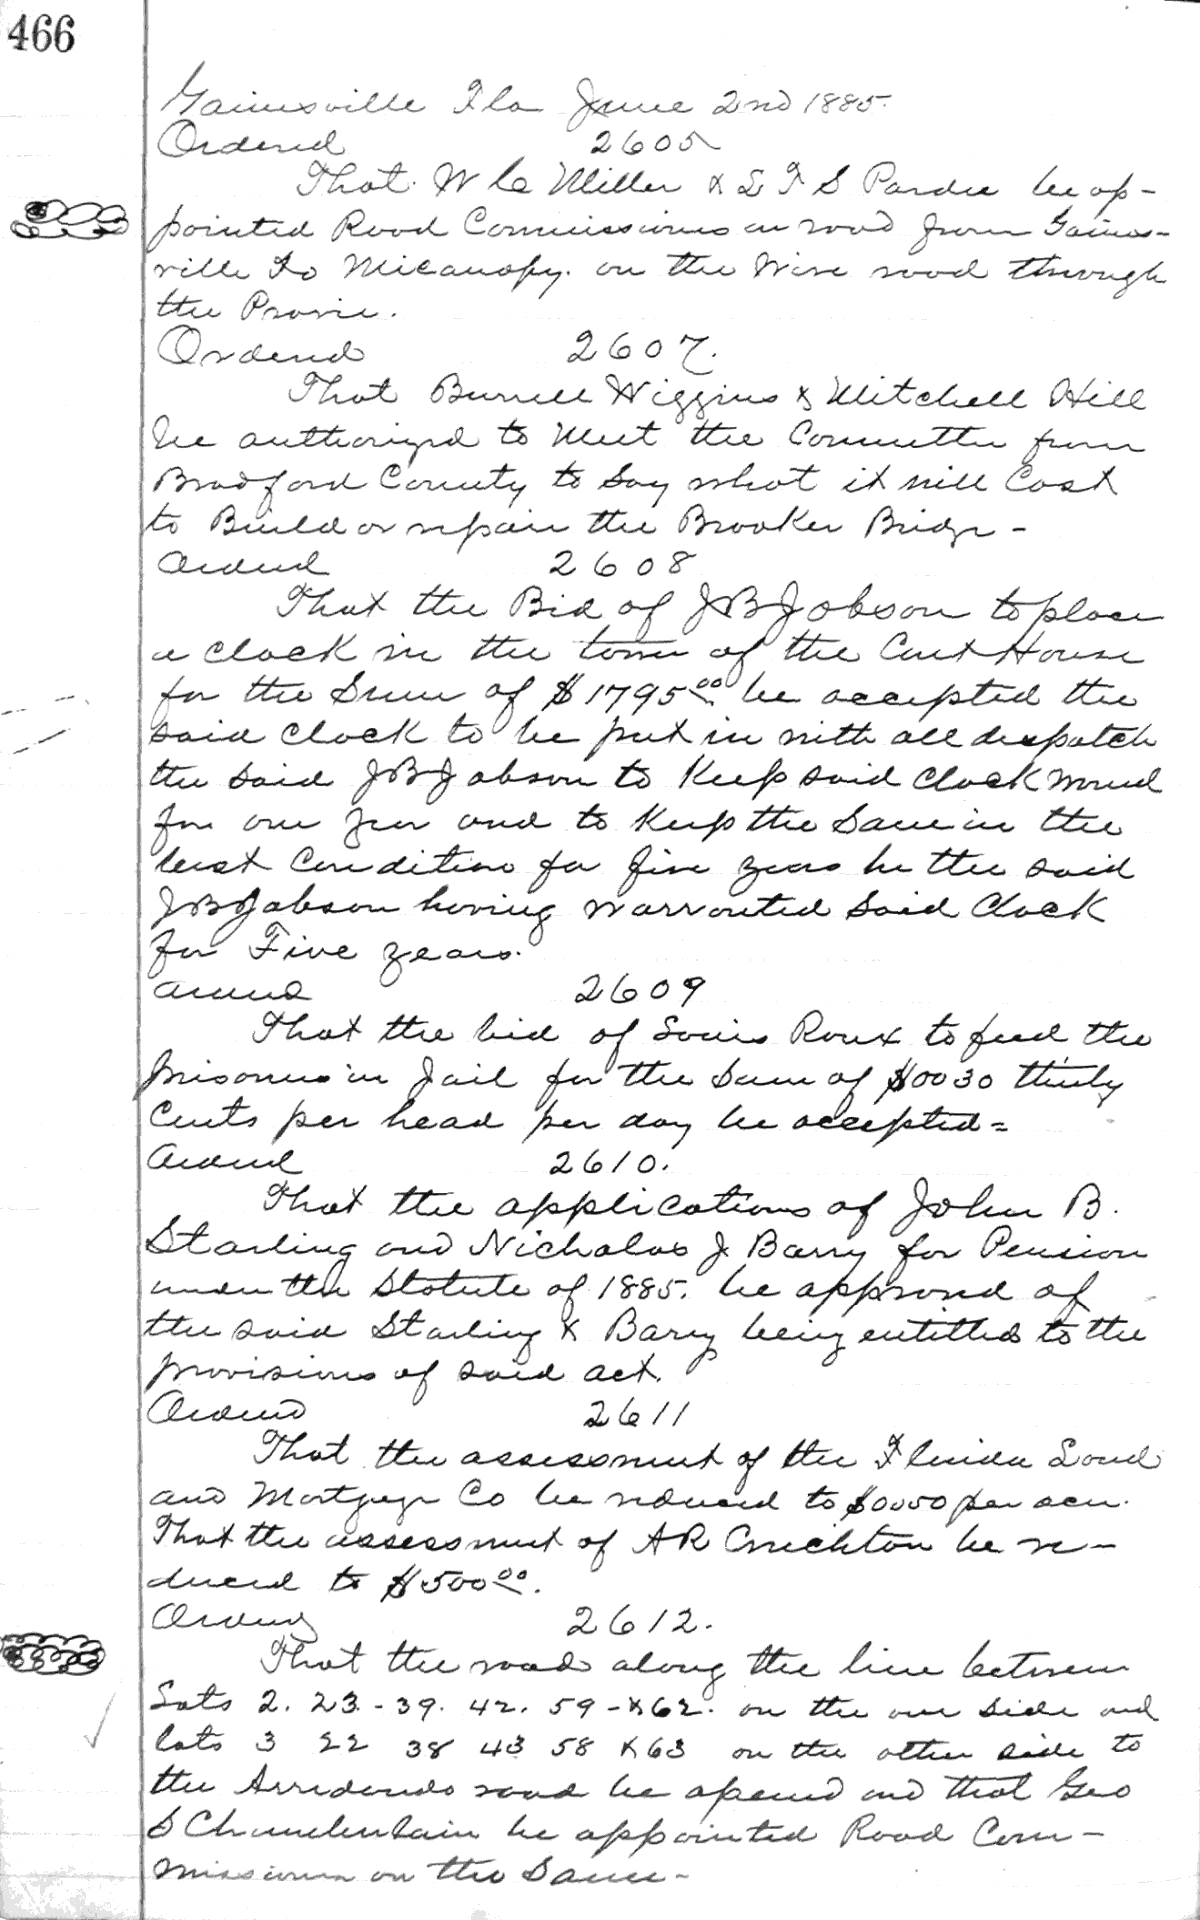 466
Gainesville Fla June 2nd 1885.
Ordered 2605
That W C Miller & L F S Pardee be ap-
pointed Road Commissioners on road from Gaines-
ville to Micanopy. on the Wire road through
the Prarie.
Ordered 2607.
That Burrell Wiggins & Mitchell Hill
be authorized to Meet the Committee from
Bradford County to Say what it will Cost
to Build or repair the Brooker Bridge -
Ordered 2608
That the Bid of J B Jobson to place
a clock in the tower of the Court House
for the Sum of $1795.00 be accepted the
said clock to be put in with all despatch
the said J B Jobson to Keep said clock wound
for one year and to Keep the Same in the
best Condition for five years he the said
J B Jobson having warranted Said Clock
for Five years.
Ordered 2609
That the bid of Louis Roux to feed the
prisoners in Jail for the Sum of $0030 thirty
Cents per head per day be accepted =
Ordered 2610.
That the applications of John B.
Starling and Nicholas J Barry for Pension
under the Statute of 1885. be approved of
the said Starling & Barry being entitled to the
provisions of said act.
Ordered 2611
That the assessment of the Florida Land
and Mortgage Co be reduced to $0050 per acre.
That the assessment of A R Crichton be re-
duced to $500.00.
Ordered 2612.
That the road along the line between
Lots 2. 23. - 39. 42. 59 - & 62. on the one side and
lots 3 22 38 43 58 & 63 on the other side to
the Arredondo road be opened and that Geo
S Chamberlain be appointed Road Com-
missioner on the Same -